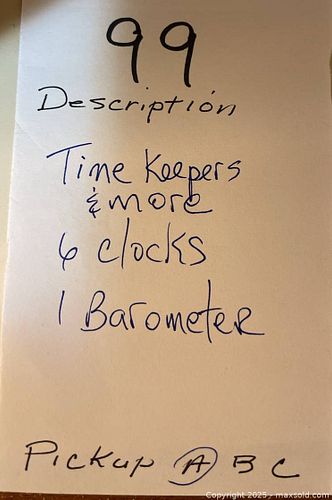 99
Description
Time Keepers
& more
6 clocks
1 Barometer
Pickup A B C
Copyright 2025 - maxsold.com